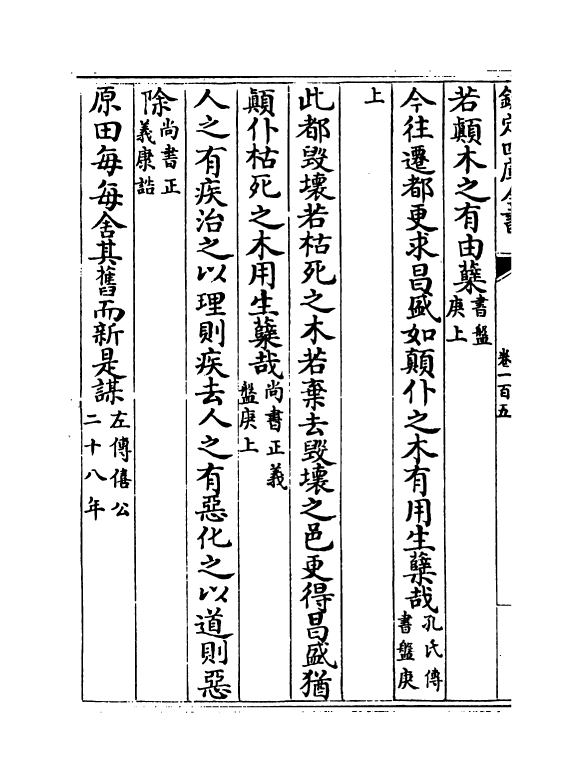 欽定四庫全書
卷一百五
若顛木之有由蘖書盤庚上
今往遷都更求昌盛如顛仆之木有用生蘖哉孔氏傳書盤庚
上
此都毀壞若枯死之木若棄去毀壞之邑更得昌盛猶
顛仆枯死之木用生蘖哉尚書正義盤庚上
人之有疾治之以理則疾去人之有惡化之以道則惡
除尚書正義康誥
原田每每舍其舊而新是謀左傳僖公二十八年